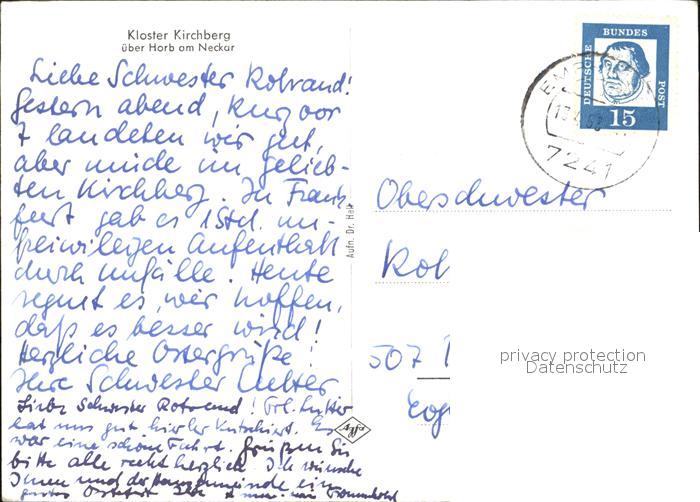 Kloster Kirchberg
über Horb am Neckar
Liebe Schwester Rotraud!
Gestern abend, kurz vor
7 landeten wir gut,
aber müde im gelieb-
ten Kirchberg. In Frank-
furt gab es 1 Std. un-
freiwilligen Aufenthalt
durch Unfälle. Heute
regnet es, wir hoffen,
daß es besser wird!
Herzliche Ostergrüße!
Ihre Schwester
Liebe Schwester Rotraud! Frl.
hat uns gut hierher kutschiert. Es
war eine schöne Fahrt. Grüßen Sie
bitte alle recht herzlich. Ich wünsche
Ihnen und der Hausgemeinde ein
gutes Osterfest Ihre
Aufn. Dr. Hell
Agfa
DEUTSCHE BUNDES POST
15
7241
Oberschwester
Rot
507
privacy protection
Datenschutz